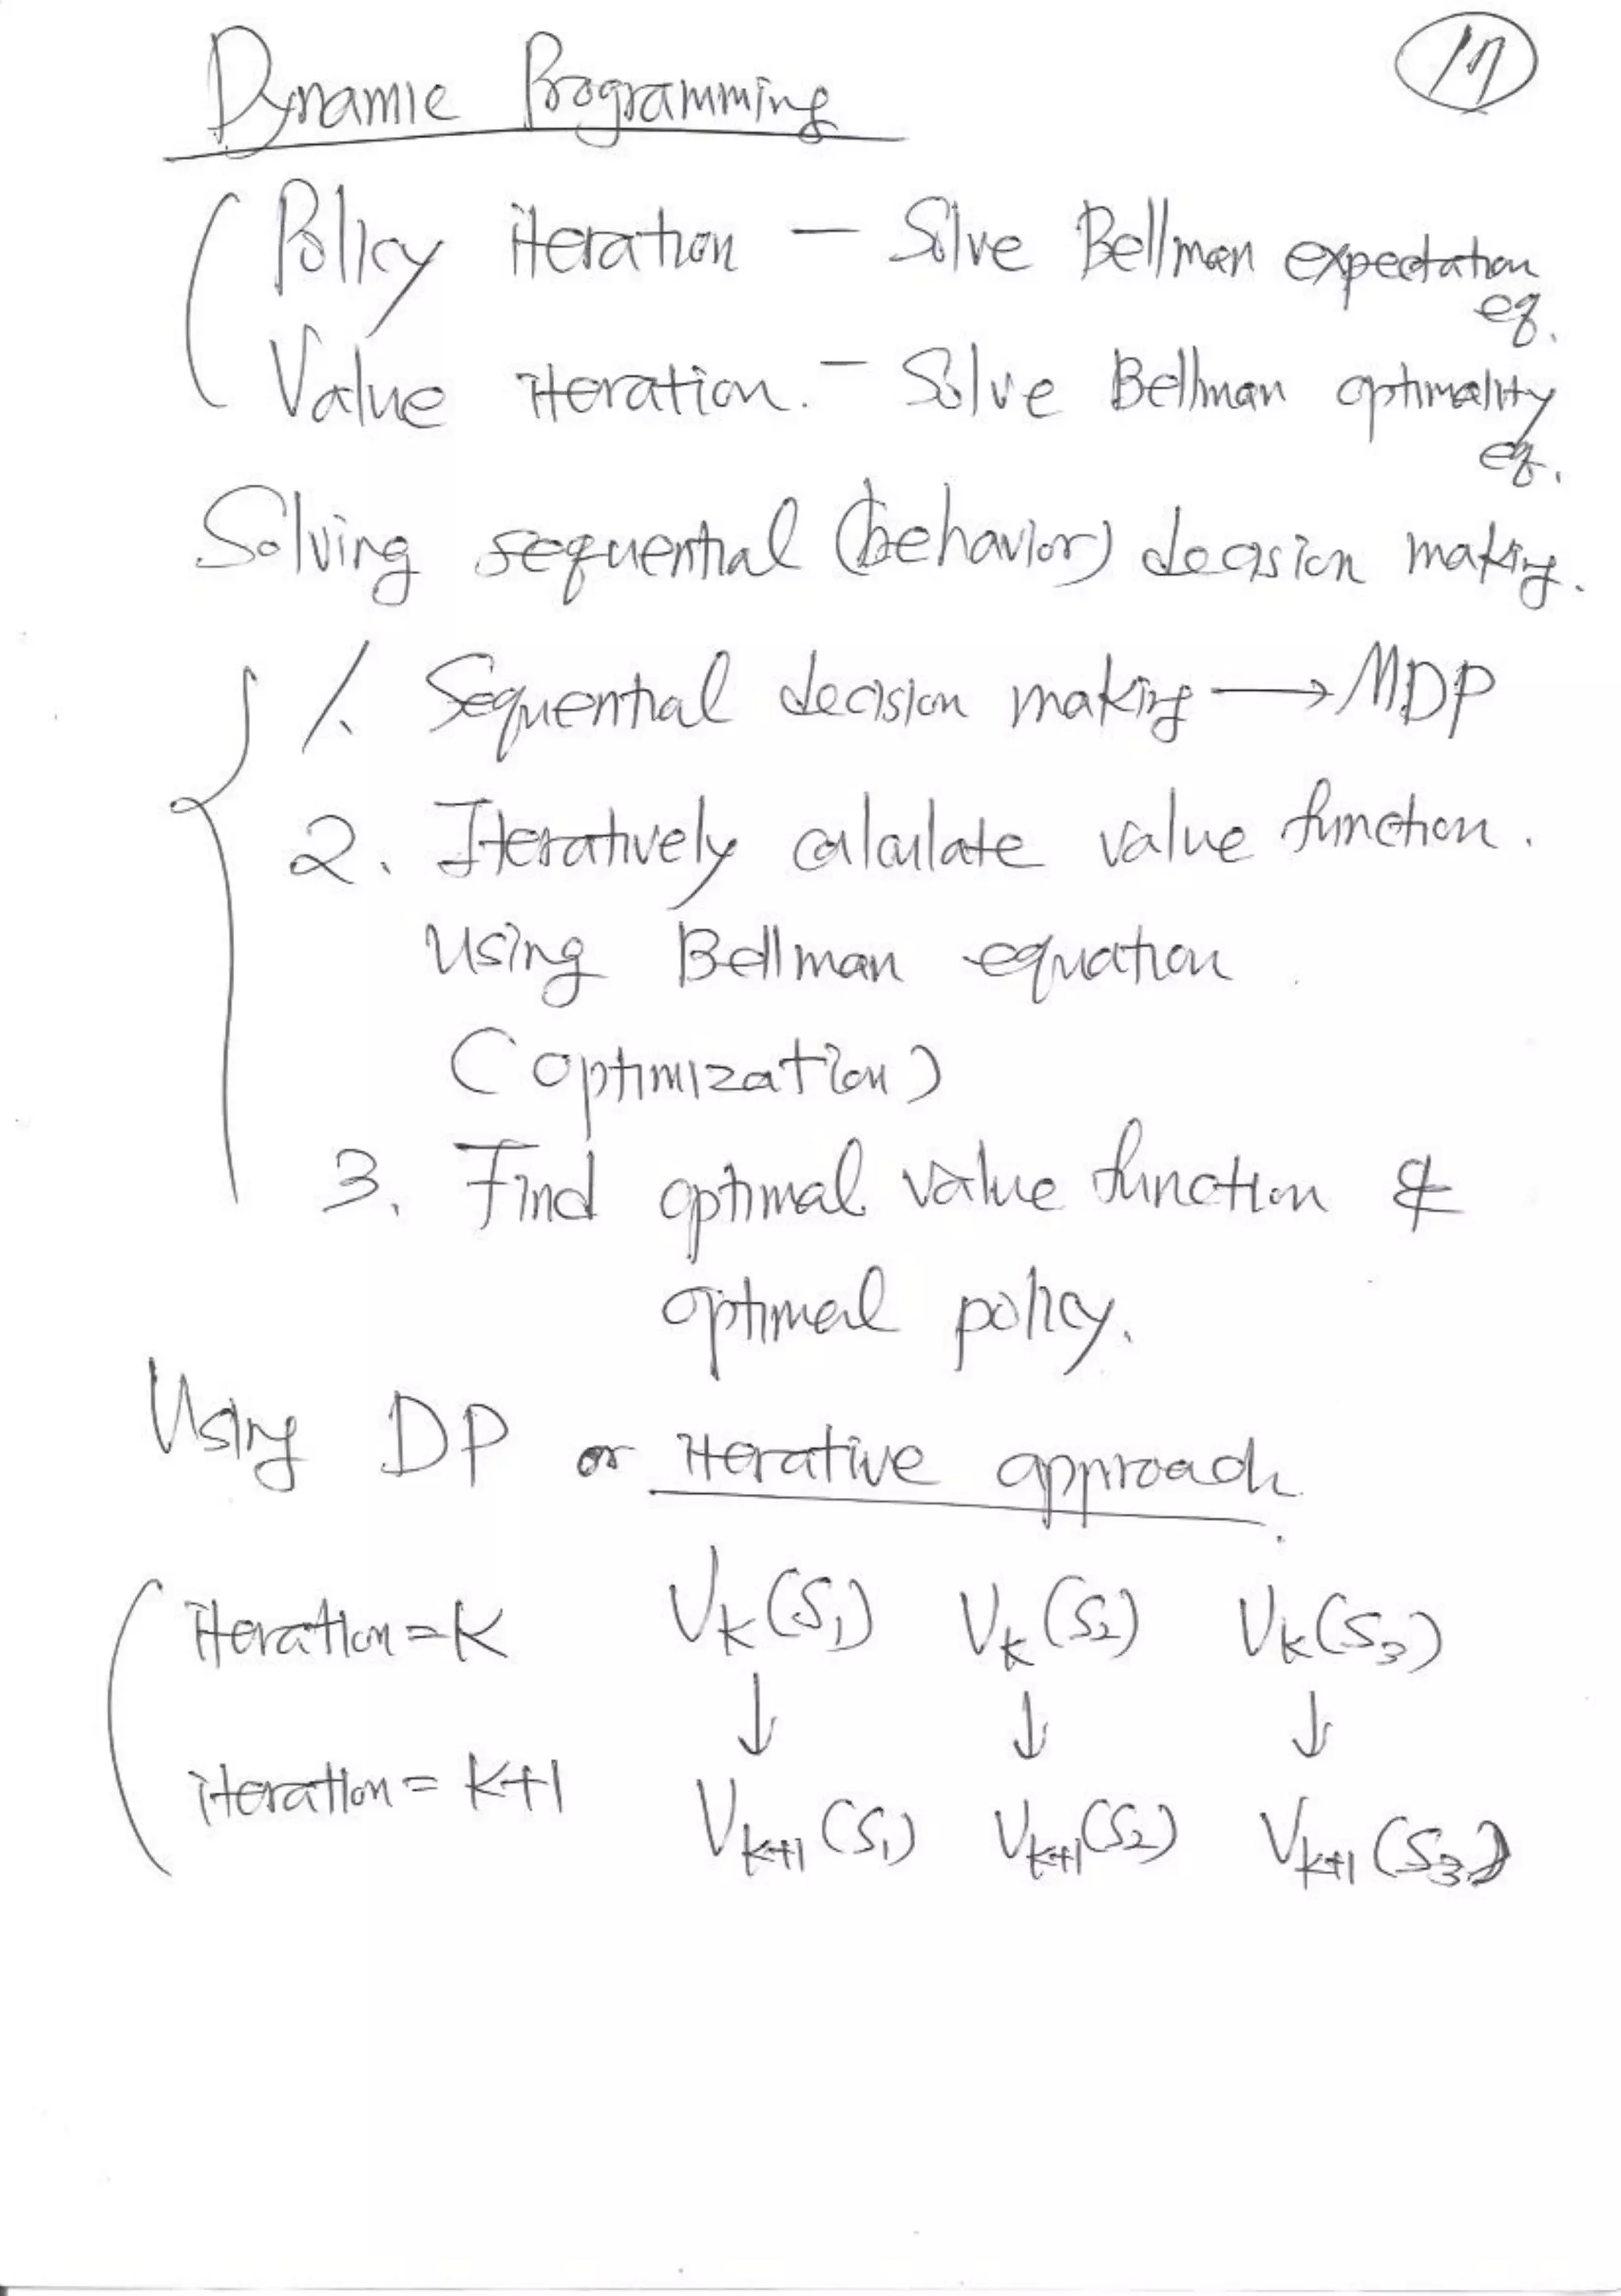 Dynamic Programming
17
Policy iteration — Solve Bellman expectation
eq.
Value iteration. — Solve Bellman optimality
eq.
Solving sequential (behavior) decision making.
1. Sequential decision making → MDP
2. Iteratively calculate value function.
using Bellman equation.
(optimization)
3. Find optimal value function &
optimal policy.
Using DP or iterative approach.
iteration = K V_k(S_1) V_k(S_2) V_k(S_3)
↓ ↓ ↓
iteration = K+1 V_{k+1}(S_1) V_{k+1}(S_2) V_{k+1}(S_3)